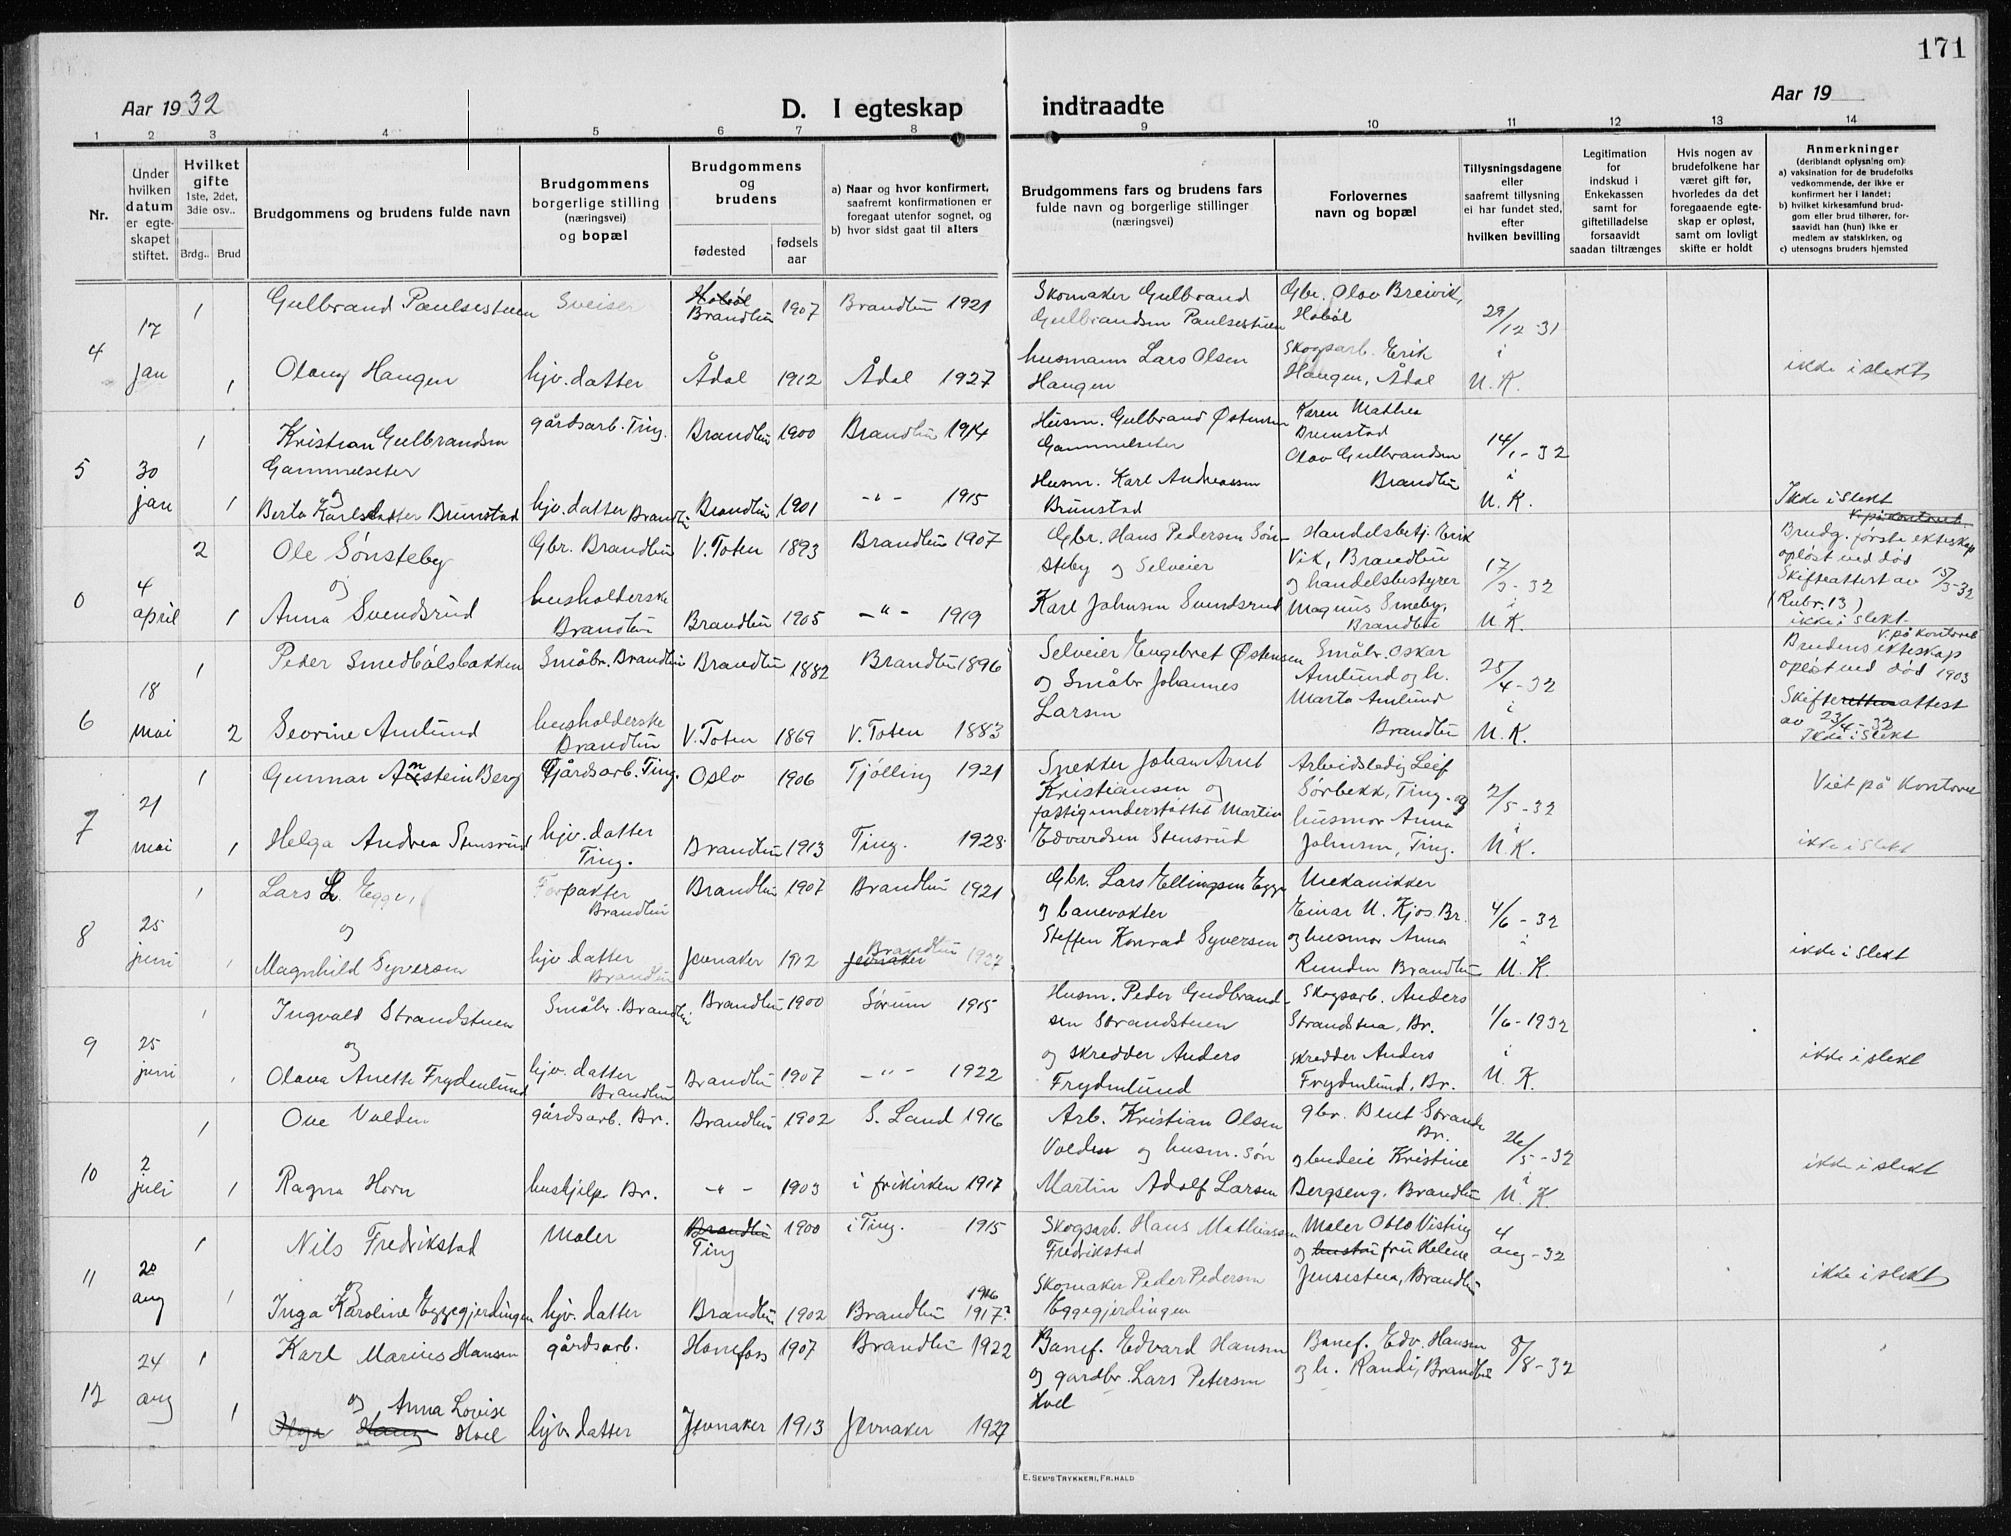 171
Aar 1932
D. I egteskap indtraadte
Aar 19
1 2 3 4 5 6 7 8 9 10 11 12 13 14
Nr.
Under hvilken datum er egteskapet stiftet.
Hvilket gifte 1ste, 2det, 3die osv..
Brdg.. Brud
Brudgommens og brudens fulde navn
Brudgommens borgerlige stilling (næringsvei) og bopæl
Brudgommens og brudens
fødested
fødselsaar
a) Naar og hvor konfirmert, saafremt konfirmationen er foregaat utenfor sognet, og
b) hvor sidst gaat til alters
Brudgommens fars og brudens fars fulde navn og borgerlige stillinger (næringsvei)
Forlovernes navn og bopæl
Tillysningsdagene eller saafremt tillysning ei har fundet sted, efter hvilken bevilling
Legitimation for indskud i Enkekassen samt for giftetilladelse forsaavidt saadan tiltrænges
Hvis nogen av brudefolkene har været gift før, hvorledes da det foregaaende egteskap er opløst, samt om lovligt skifte er holdt
Anmerkninger
(deriblandt oplysning om):
a) vaksination for de brudefolks vedkommende, der ikke er konfirmert her i landet;
b) hvilket kirkesamfund brudgom eller brud tilhører, forsaavidt han (hun) ikke er medlem av statskirken, og
c) utensogns bruders hjemsted
4 17 jan
1 Gulbrand Paulsestuen Sveiser Hobøl Brandbu 1907 Brandbu 1921 Skomaker Gulbrand Gulbrandsen Paulsestuen Gbr. Olov Breivik, Hobøl 29/12-31
1 Olaug Haugen hjv. datter Ådal 1912 Ådal 1927 husmann Lars Olsen Haugen Skogsarb. Erik Haugen, Ådal i U. K. ikke i slekt
5 30 jan
1 Kristian Gulbrandsen Gammelseter gårdsarb. Ting. Brandbu 1900 Brandbu 1914 Husm. Gulbrand Østensen Gammelseter Karen Mathea Brunstad 14/1-32
og
1 Berta Karlsdatter Brunstad hjv. datter Brandbu Brandbu 1901 -"- 1915 Husm. Karl Andreassen Brunstad Olav Gulbrandsen Brandbu i U. K. Ikke i slekt
V. på kontoret.
0 4 april
2 Ole Sønsteby Gbr. Brandbu V. Toten 1893 Brandbu 1907 Gbr. Hans Pedersen Sønsteby og Selveier Handelsbetj. Erik Vik, Brandbu 17/3-32 Brudg. første ekteskap opløst ved død
og
1 Anna Svendsrud husholderske Brandbu Brandbu 1905 -"- 1919 Karl Johnsen Svendsrud og handelsbestyrer Magnus Smeby, Brandbu i U. K. Skifteattest av 15/3-32 (Rubr. 13) ikke i slekt.
V. på kontoret
6 18 mai
1 Peder Smedbølsbakken Småbr. Brandbu Brandbu 1882 Brandbu 1896 Selveier Engebret Østensen Småbr. Oskar Amlund og h. 25/4-32 Brudens ekteskap opløst ved død 1903
2 Sevrine Amlund husholderske Brandbu V. Toten 1869 V. Toten 1883 og Småbr Johannes Larsen Marta Amlund Brandbu i U. K. Skifteretten attest av 23/4-32 Ikke i slekt
7 21 mai
1 Gunnar Arnstein Berg Gårdsarb. Ting. Oslo 1906 Tjølling 1921 Snekker Johan Arnt Kristiansen og Arbeidsledig Leif Sørbekk, Ting. og 2/5-32 Viet på Kontoret
1 Helga Andrea Stensrud hjv. datter Ting. Brandbu 1913 Ting. 1928. fattigunderstøttet Martin Edvardsen Stensrud husmor Anna Johnsen, Ting. i U. K. ikke i slekt
8 25 juni
1 Lars L. Egge, Forpakter Brandbu Brandbu 1907 Brandbu 1921 Gbr. Lars Ellingsen Egge Mekanikker Einar U. Kjos. Br. 4/6-32
og
1 Magnhild Syversen hjv. datter Brandbu Jevnaker 1912 Jevnaker Brandbu 1927 og banevokter Steffen Konrad Syversen og husmor Anna Runden Brandbu i U. K. ikke i slekt
9 25 juni
1 Ingvald Strandstuen Småbr. Brandbu Brandbu 1900 Sørum 1915 Husm. Peder Gudbrandsen Strandstuen Skogsarb. Anders Strandstua, Br. 1/6-1932
og
1 Olava Anette Frydenlund hjv. datter Brandbu Brandbu 1907 -"- 1922 og skredder Anders Frydenlund skredder Anders Frydenlund, Br. i U. K. ikke i slekt
10 2 juli
1 Ove Volden gårdsarb. Br. Brandbu 1902 S. Land 1916 Arb. Kristian Olsen Volden og husm. søn gbr. Bent Strande Br. 26/5-32
1 Ragna Horn hushjelp Br. -"- 1903 i frikirken 1917 Martin Adolf Larsen og budeie Kristine Bergseng. Brandbu i U. K. ikke i slekt
11 20 aug
1 Nils Fredrikstad Maler Brandbu Ting 1900 i Ting. 1915 Skogsarb. Hans Mathiassen Fredrikstad Maler Otto Visting 4 aug-32
og
1 Inga Karoline Eggegjerdingen hjv. datter Brandbu 1902 Brandbu 1916 1917? Skomaker Peder Pedersen Eggegjerdingen og hustru fru Helene Jensestua, Brandbu ikke i slekt
12 24 aug
1 Karl Marius Hansen gårdsarb. Hønefoss 1907 Brandbu 1922 Banef. Edvard Hansen Banef. Edv. Hansen og h. Randi, Brandbu 8/8-32
og Anna Lovise
1 Olga Haug Hvel hjv. datter Jevnaker 1913 Jevnaker 1927 og gardbr. Lars Petersen Hvel
E. SEM'S TRYKKERI, FR.HALD